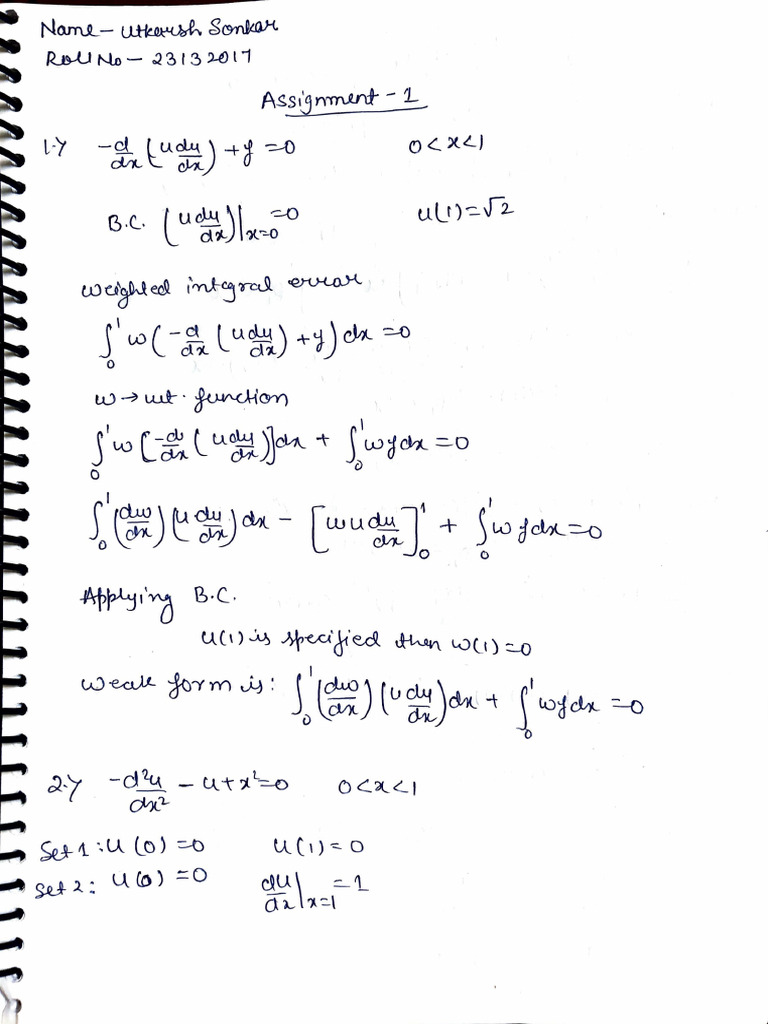 Name - Utkarsh Sonkar
Roll No - 23132017
Assignment - 1
1.) -d/dx (u du/dx) + f = 0    0 < x < 1
B.C. (u du/dx)|x=0 = 0    u(1) = √2
weighted integral error
∫₀¹ w (-d/dx (u du/dx) + f) dx = 0
w → wt. function
∫₀¹ w [-d/dx (u du/dx)] dx + ∫₀¹ w f dx = 0
∫₀¹ (dw/dx) (u du/dx) dx - [w u du/dx]₀¹ + ∫₀¹ w f dx = 0
Applying B.C.
u(1) is specified then w(1) = 0
weak form is: ∫₀¹ (dw/dx) (u du/dx) dx + ∫₀¹ w f dx = 0
2.) -d²u/dx² - u + x² = 0    0 < x < 1
Set 1: u(0) = 0    u(1) = 0
Set 2: u(0) = 0    du/dx|x=1 = 1